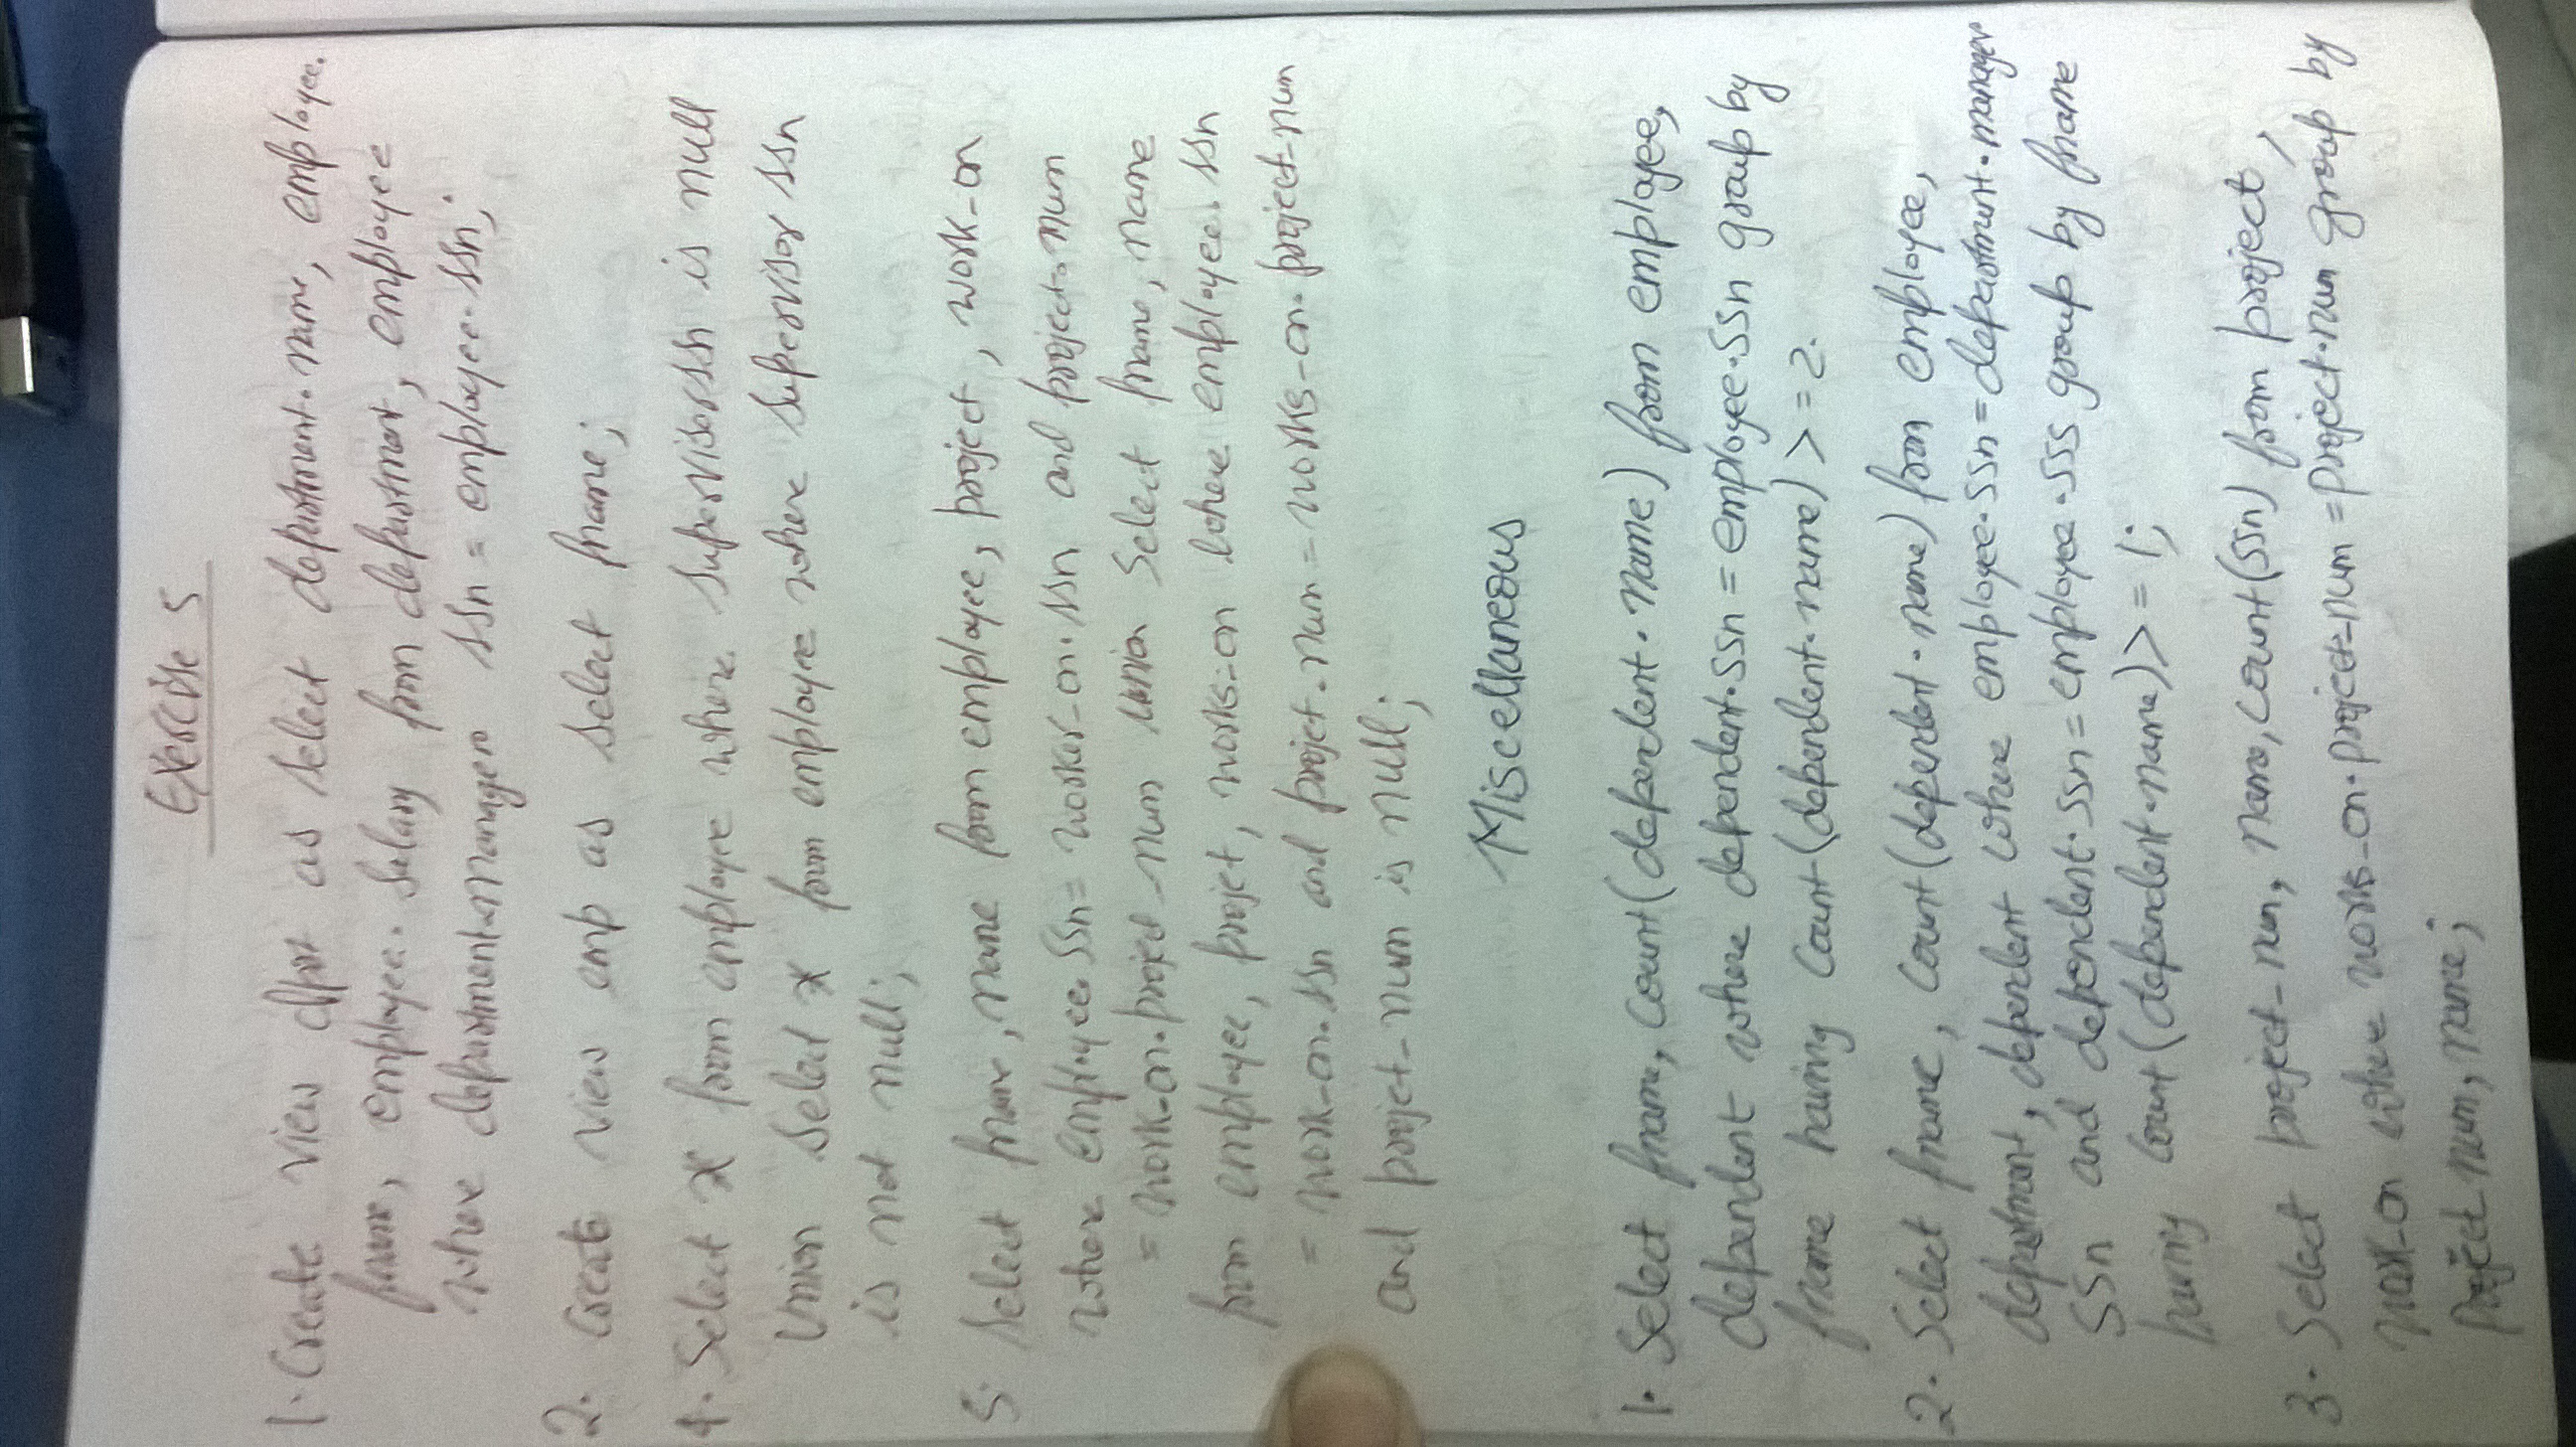 Exercise 5
1. Create view dept as select department.name, employee.
fname, employee. salary from department, employee
where department.manager ssn = employee.ssn;
2. Create view emp as select fname;
4. Select * from employee where supervisorssn is null
Union select * from employee where supervisor ssn
is not null;
5. select fname, name from employee, project, work_on
where employee.ssn = works_on.ssn and project.num
= work_on.project_num union select fname, name
from employee, project, works_on where employee.ssn
= work_on.ssn and project.num = works_on.project_num
and project_num is null;
Miscellaneous
1. Select fname, count(dependent.name) from employee,
dependent where dependent.ssn = employee.ssn group by
fname having count(dependent.name) >= 2.
2. Select fname, count(dependent.name) from employee,
department, dependent where employee.ssn = department.manager
ssn and dependent.ssn = employee.sss group by fname
having count(dependent.name) >= 1;
3. Select project_num, name, count(ssn) from project,
work_on where works_on.project_num = project.num group by
project num, name;